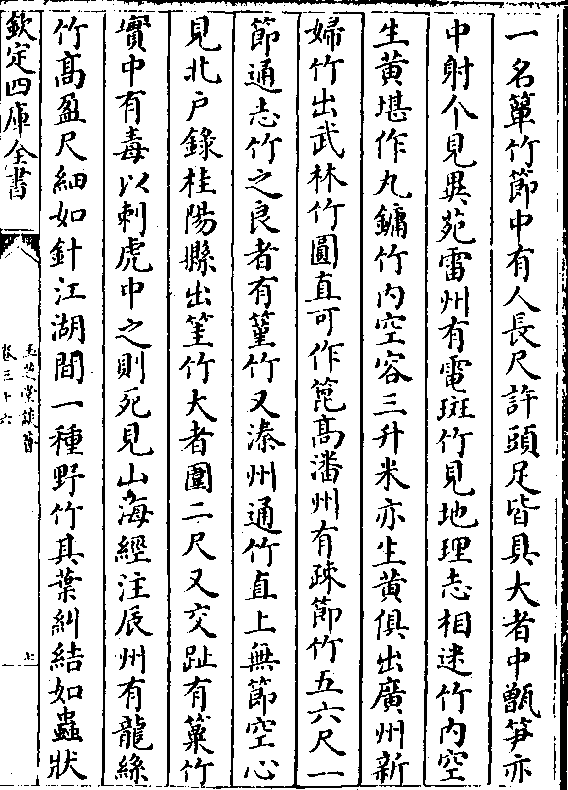 一名篳竹節中有人長尺許頭足皆具大者中甑笋亦
中射个見異苑雷州有電斑竹見地理志相迷竹内空
生黄堪作丸鏞竹内空容三升米亦生黄俱出廣州新
婦竹出武林竹圓直可作箆高潘州有疎節竹五六尺一
節通志竹之良者有篁竹又溱州通竹直上無節空心
見北户錄桂陽縣出筀竹大者圍二尺又交趾有篥竹
實中有毒以刺虎中之則死見山海經注辰州有龍絲
竹高盈尺細如針江湖間一種野竹其葉糾結如蟲狀
欽定四庫全書
玉芝堂談薈
卷三十六